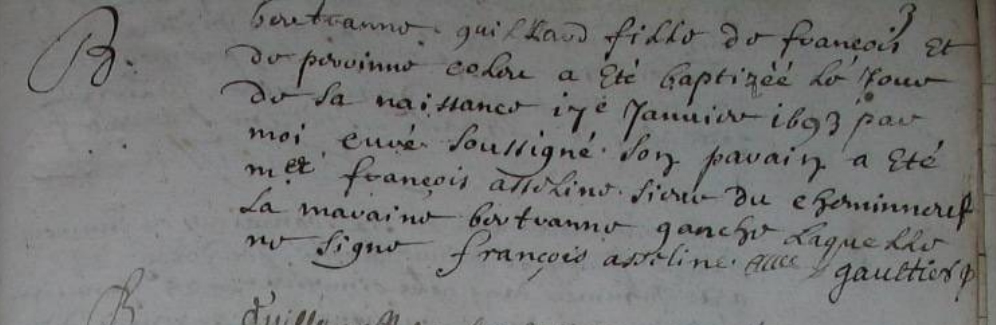 3
B. bertranne guilhard fille de françois et
de perrinne colin a été baptizéé le jour
de sa naissance 17e Januier 1693 par
moi curé soussigné son parain a été
met françois asseline sieur du cheminneref
La maraine bertranne ganche Laquelle
ne signe françois asseline gaultier
B